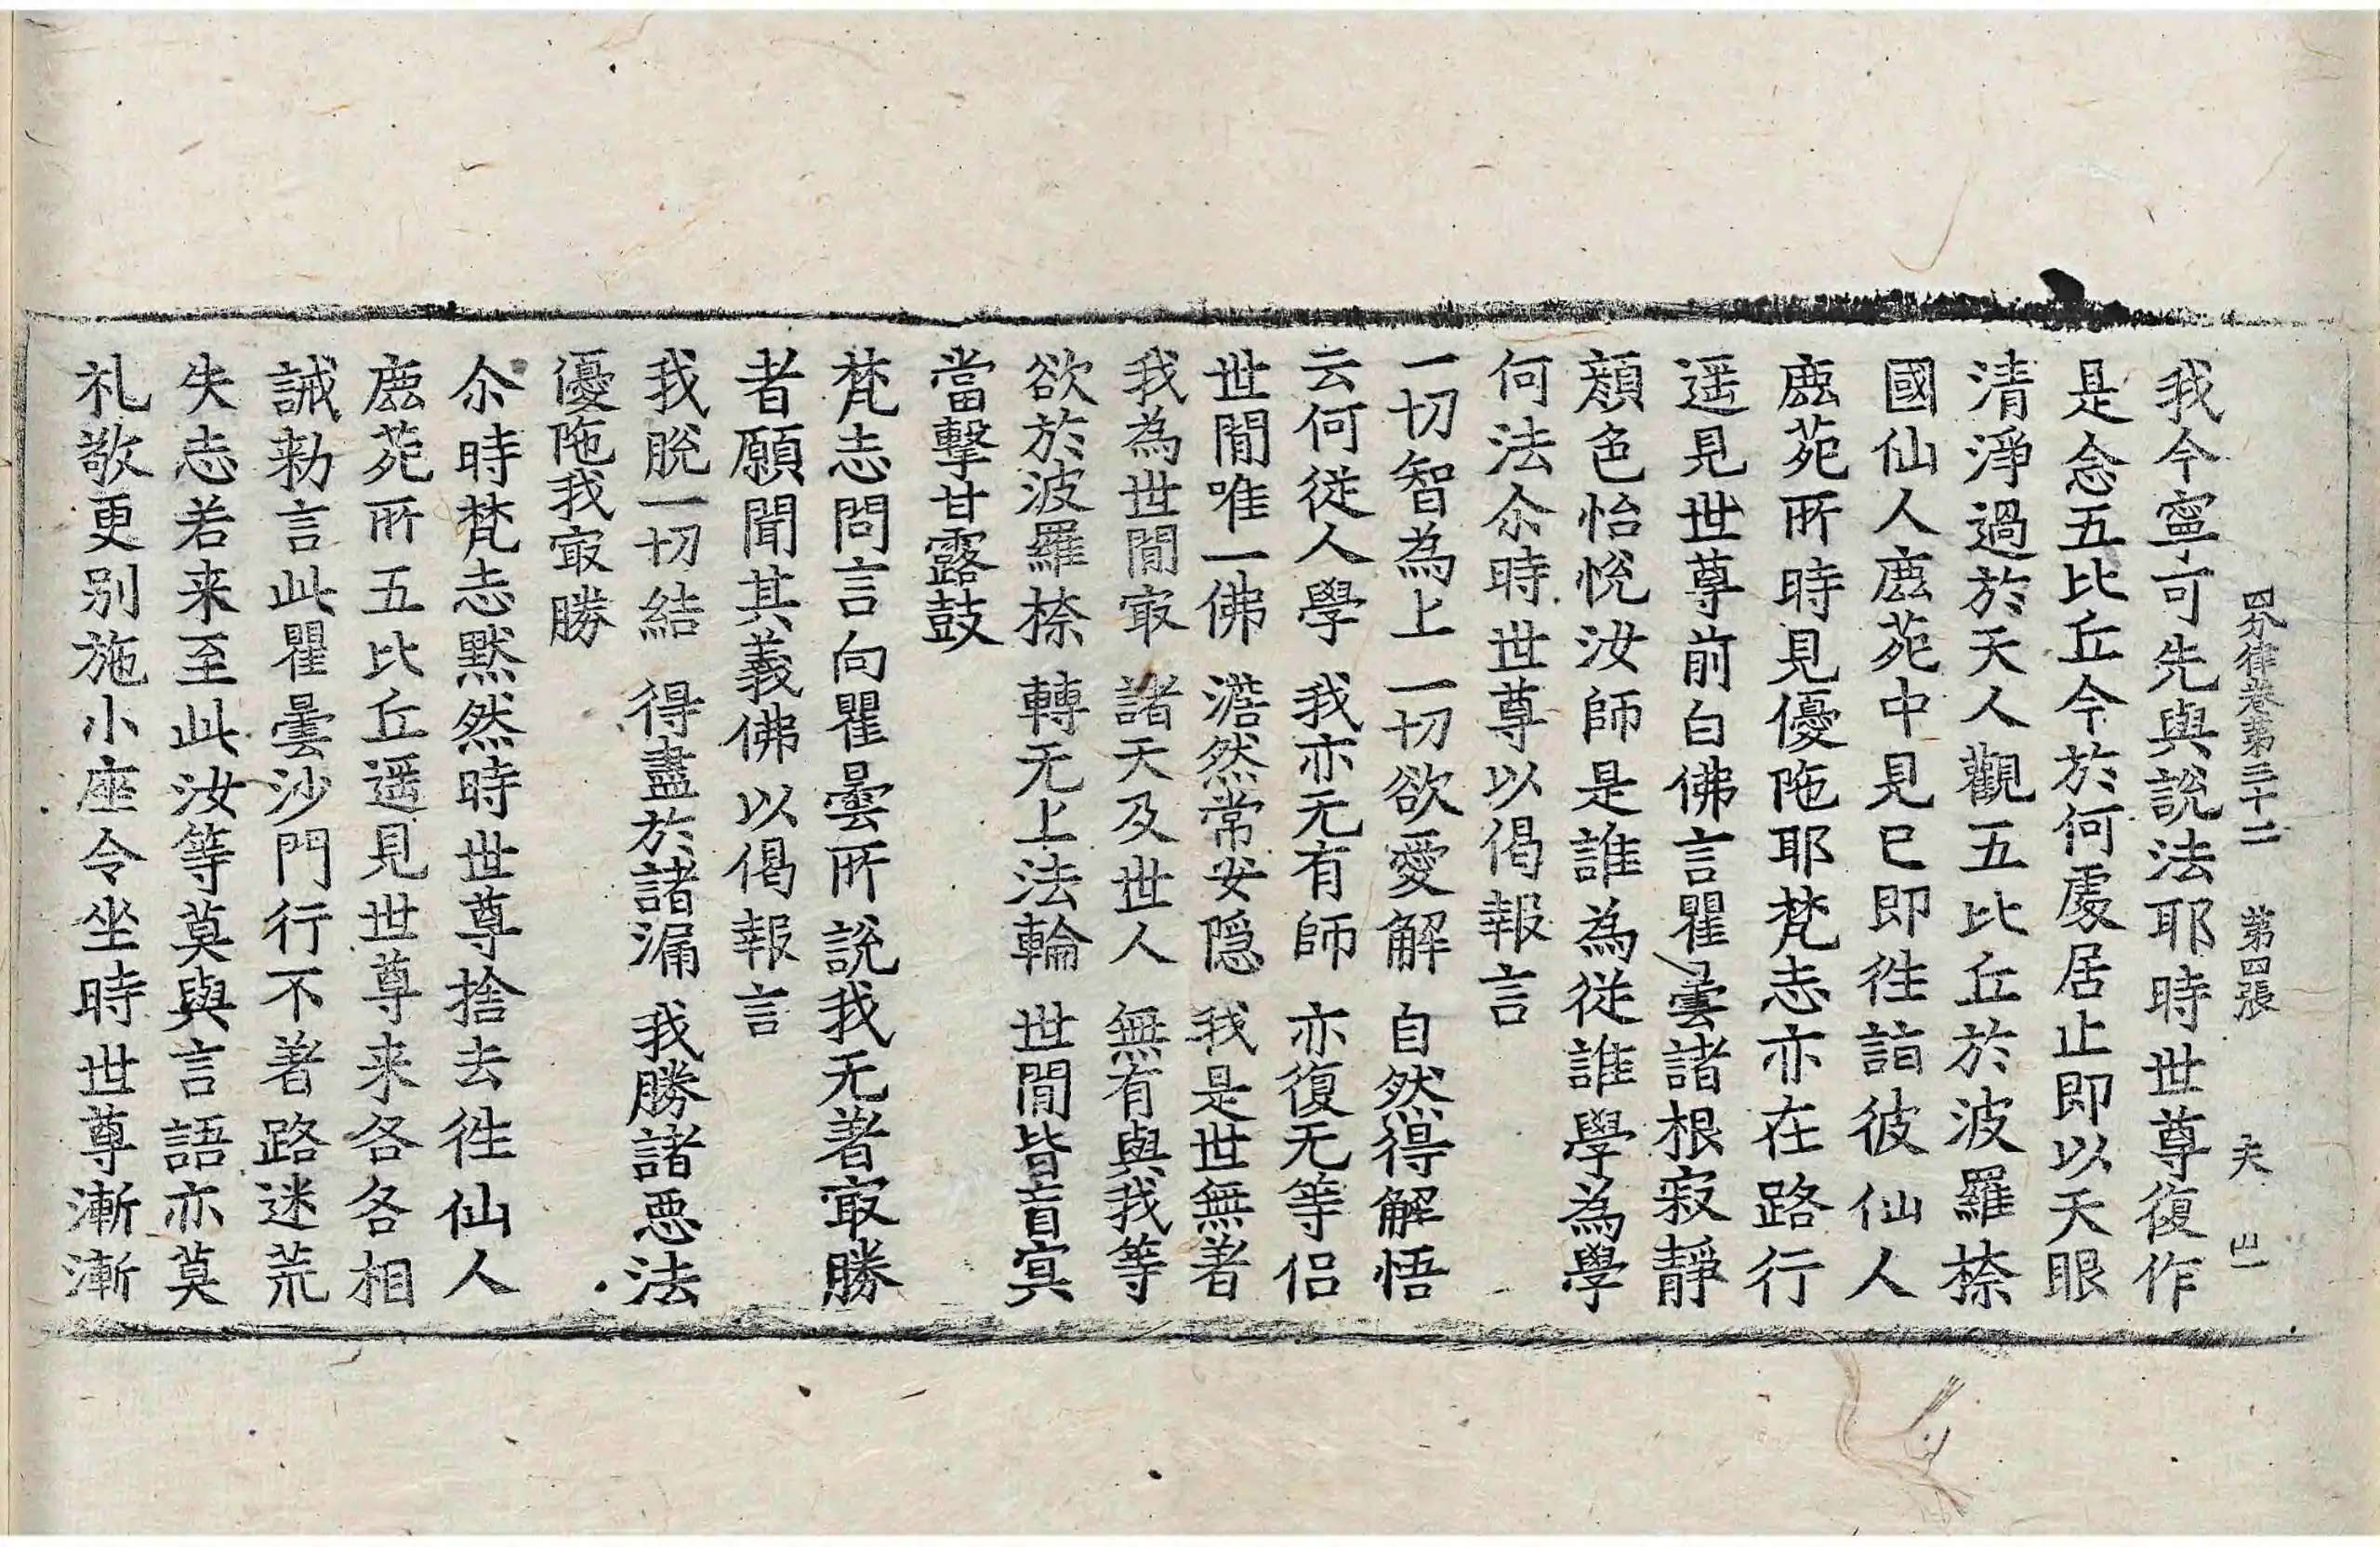 四分律卷第三十二 第四張 夫
我今寧可先與說法耶時世尊復作
是念五比丘今於何處居止即以天眼
清淨過於天人觀五比丘於波羅㮈
國仙人鹿苑中見已即往詣彼仙人
鹿苑所時見優陁耶梵志亦在路行
遥見世尊前白佛言瞿曇諸根寂靜
顔色怡悅汝師是誰為從誰學為學
何法尒時世尊以偈報言
一切智為上 一切欲愛解 自然得解悟
云何從人學 我亦无有師 亦復无等侣
世間唯一佛 澹然常安隱 我是世無著
我為世間㝡 諸天及世人 無有與我等
欲於波羅㮈 轉无上法輪 世間皆盲冥
當擊甘露鼓
梵志問言向瞿曇所說我无著㝡勝
者願聞其義佛以偈報言
我脫一切結 得盡於諸漏 我勝諸惡法
優陁我㝡勝
尒時梵志默然時世尊捨去往仙人
鹿苑所五比丘遥見世尊来各各相
誡勑言此瞿曇沙門行不著路迷荒
失志若来至此汝等莫與言語亦莫
礼敬更别施小座令坐時世尊漸漸